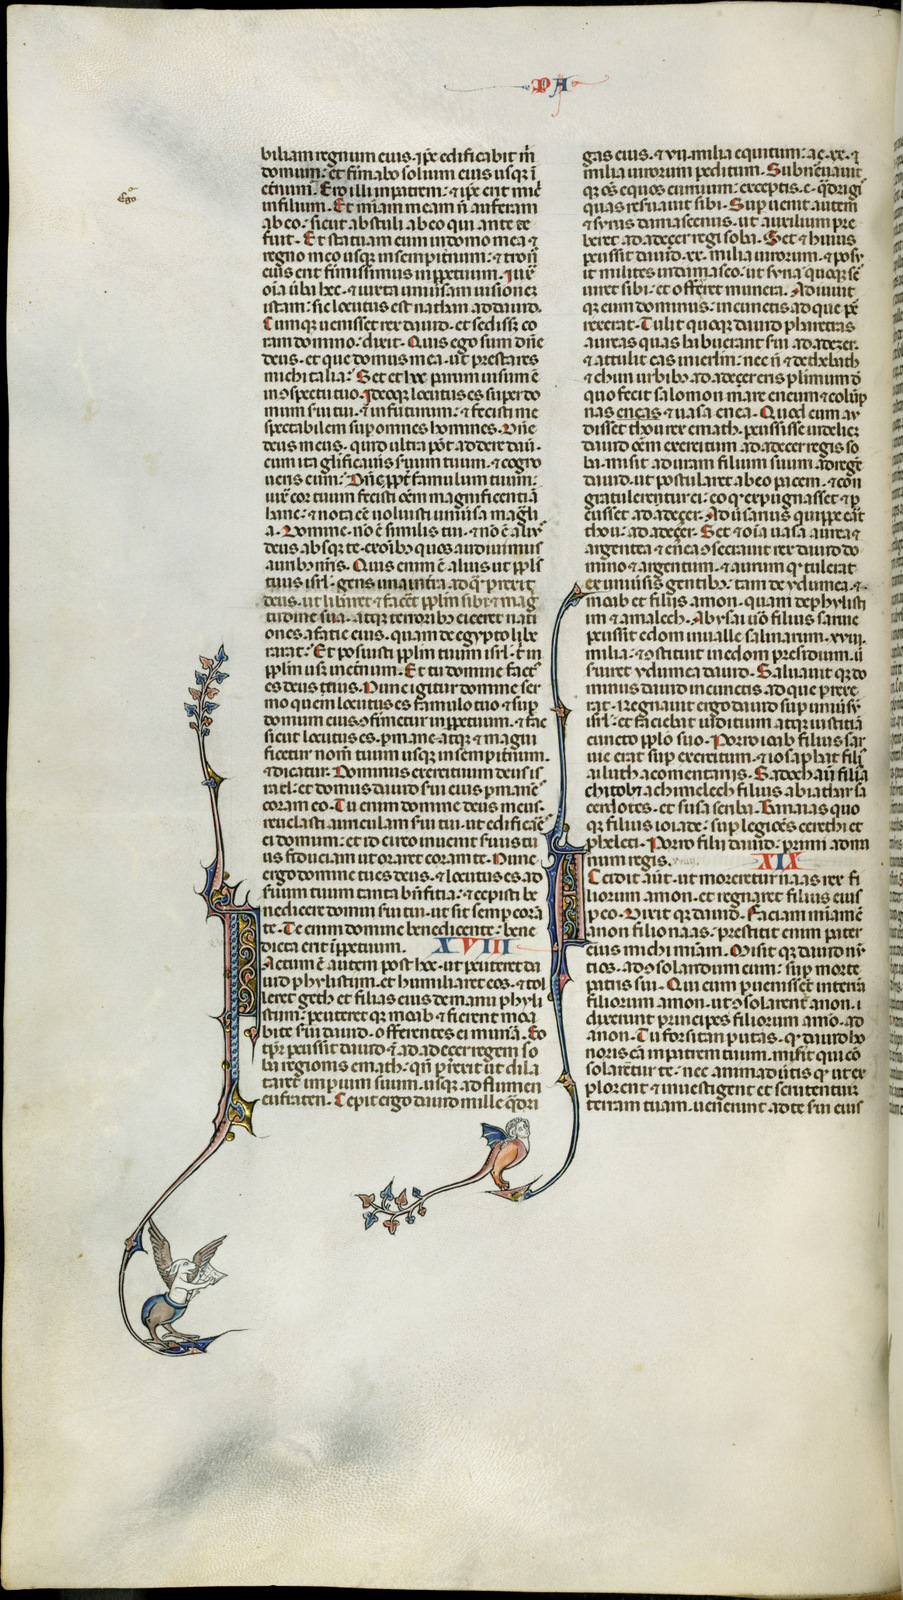 PA
Ego
biliam regnum eius. ipse edificabit m̄
domum: et firmabo solium eius usqȝ ī
et̄num. Ero illi in patrem: ⁊ ipse erit mͥ
in filium. Et mīam meam n̄ auferam
ab eo: sicut abstuli ab eo qui ante te
fuit. Et statuam eum in domo mea ⁊
regno meo usqȝ in sempit̄num: ⁊ tron̄
eius erit firmissimus in ppetuum. Iux̄
oīa ūba hec. ⁊ iuxta uniūsam uisionez
istam: sic locutus est nathan ad dauid.
Cumqȝ uenisset rex dauid. et sedissꝫ co
ram domino: dixit. Quis ego sum dn̄e
deus. et que domus mea. ut prestares
michi talia: Set et hoc parum uisum ē
in ꝯspectu tuo. Ideoqȝ locutus es super do
mum s̄ui tui. ⁊ in futurum: ⁊ fecisti me
spectabilem sup omnes homines. Dn̄e
deus meus. quid ultra pōt addere daū.
cum ita gl̄ificaūis s̄uum tuum. ⁊ cogno
ueris eum: Dn̄e ppt̄ famulum tuum:
iux̄ cor tuum fecisti om̄em magnificentiā
hanc: ⁊ nota eē uoluisti uniūsa magli
a. Domine. nō ē similis tui. ⁊ nō ē aliꝰ
deus absqȝ te. ex oībꝫ quos audiuimus
auribꝫ nrīs. Quis enim ē alius ut ppls
tuus isrl. gens una in tra. ad qm̄ prexit
deus. ut libaret ⁊ facet pplm sibi: ⁊ mag
tudine sua. atqȝ terroribꝫ eiceret nati
ones a facie eius. quam de egypto libe
rarat: Et posuisti pplm tuum isrl. t̄ in
pplm usqȝ in et̄num. Et tu domine factꝰ
es deus eius. Nunc igitur domine ser
mo quem locutus es famulo tuo ⁊ sup
domum eius ꝯfirmetur in ppetuum. ⁊ fac
sicut locutus es. pmaneatqȝ ⁊ magni
ficetur nom̄ tuum usqȝ in sempit̄num.
⁊ dicatur. Dominus exercituum deus is
rael. et domus dauid s̄ui eius pmanēs
coram eo. Tu enim domine deus meus.
reuelasti auriculam s̄ui tui. ut edificaēs
ei domum: et idcirco inuenit s̄uus tu
us fiduciam ut oraret coram te. Nunc
ergo domine tu es deus. ⁊ locutus es ad
s̄uum tuum tanta bn̄fitia: ⁊ cepisti be
nedicere domui s̄ui tui. ut sit semp corā
te. Te enim domine benedicente: bene
dicta erit ī ppetuum. XVIII
Factum ē autem post hec. ut pcuteret da
uid phylistum. et humiliaret eos. ⁊ tol
leret geth et filias eius de manu phyli
stum: pcuteret qȝ moab ⁊ fierent moa
bite s̄ui dauid. offerentes ei mun̄a. Eo
tpr̄ pcussit dauid ⁊ adadecer regem so
ba regionis emath. qn̄ prexit ut dila
taret impium suum. usqȝ ad flumen
eufraten. Cepit ergo dauid mille qͣdri
gas eius. ⁊ vii. milia equitum: ac. xx. ⁊
milia uirorum peditum. Subneruauit
qȝ om̄s equos curruum: exceptis. c. qͣdrigis
quas resuauit sibi. Sup uenit autem
⁊ syrus damascenus. ut auxilium pre
beret adadecer regi soba. Set ⁊ huius
pcussit dauid. xx. milia uirorum. ⁊ posu
it milites in damasco. ut syria quoqȝ s̄e
uiret sibi. et offerret munera. Adiuuit
qȝ eum dominus. in cunctis ad que per
rexerat. Tulit quoqȝ dauid pharetras
aureas quas habuerant s̄ui adadezer.
⁊ attulit eas in ierlm: nec n̄ ⁊ de thebath
⁊ chun urbibꝫ adadeceris plurimum eris
quo fecit salomon mare eneum ⁊ colūp
nas eneas ⁊ uasa enea. Quod cum au
disset thou rex emath. pcussisse uidelicꝫ
dauid om̄em exercitum adadecer regis so
ba. misit aduram filium suum ad rege
dauid. ut postularet ab eo pacem. ⁊ con
gratularentur ei: eo qꝫ expugnasset ⁊ p
cussset adadecer. Adūsarius quippe erat
thou: adadecer. Set ⁊ oīa uasa aurea ⁊
argentea ⁊ en̄ea ꝯsecrauit rex dauid do
mino ⁊ argentum. ⁊ aurum qͦ tulerat
ex uniūsis gentibꝫ. tam de ydumea. ⁊
moab et filiis amon. quam de phylisti
im ⁊ amalech. Abysai uo filius saruie
pcussit edom in ualle salinarum. xviii.
milia: ⁊ ꝯstituit in edom presidium. ut
s̄uiret ydumea dauid. Saluauit qȝ do
minus dauid in cunctis ad que prexe
rat. Regnauit ergo dauid sup uniūsū
isrl. et faciebat iudicium atqȝ iusticiā
cuncto pplo suo. Porro ioab filius sar
uie erat sup exercitum. ⁊ iosaphat fili
ailuth a comentariis. Sadoch aut̄ filiꝰ
chitob ⁊ achimelech filius abiathar sa
cerdotes. et susa scriba. Banaias quo
qȝ filius ioiade: sup legiones cerethi et
pheleti. Porro filii dauid: primi ad ma
num regis. XIX
Accidit aut̄. ut moreretur naas rex fi
liorum amon. et regnaret filius eius
p eo. Dixit qȝ dauid. Faciam miām cū
anon filio naas: prestitit enim pater
eius michi grām. Misit qȝ dauid nū
tios. ad ꝯsolandum eum: sup morte
patris sui. Qui cum puenissent in terrā
filiorum amon. ut ꝯsolarent̄ anon. i
dixerunt principes filiorum amō. ad
anon. Tu forsitan putas. qͦ dauid ho
noris cā in patrem tuum. misit qui cō
solaretur te: nec animadūtis qͦ ut ex
plorent ⁊ inuestigent et scrutentur
terram tuam. uenerunt ad te s̄ui eius